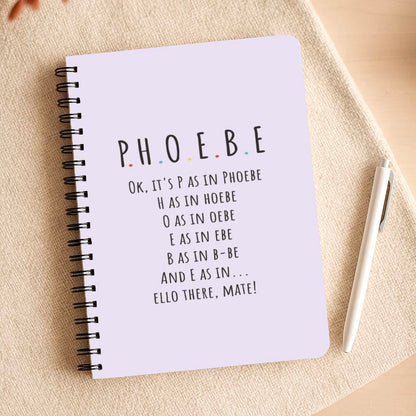 P.H.O.E.B.E
Ok, it's P as in Phoebe
H as in hoebe
O as in oebe
E as in ebe
B as in b-be
And E as in...
ello there, mate!